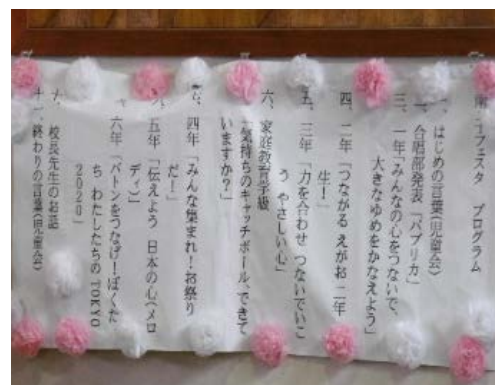 フェスタ プログラム
はじめの言葉(児童会)
二、合唱部発表「パプリカ」
三、一年「みんなの心をつないで、
大きなゆめをかなえよう」
四、二年「つながる えがお 二年
生!」
五、三年「力を合わせ つないでいこ
う やさしい心」
六、家庭教育学級
「気持ちのキャッチボール、できて
いますか?」
四年「みんな集まれ!お祭り
だ!」
五年「伝えよう 日本の心(メロ
ディ)」
六年「バトンをつなげ!ぼくた
ち わたしたちの TOKYO
2020」
校長先生のお話
終わりの言葉(児童会)